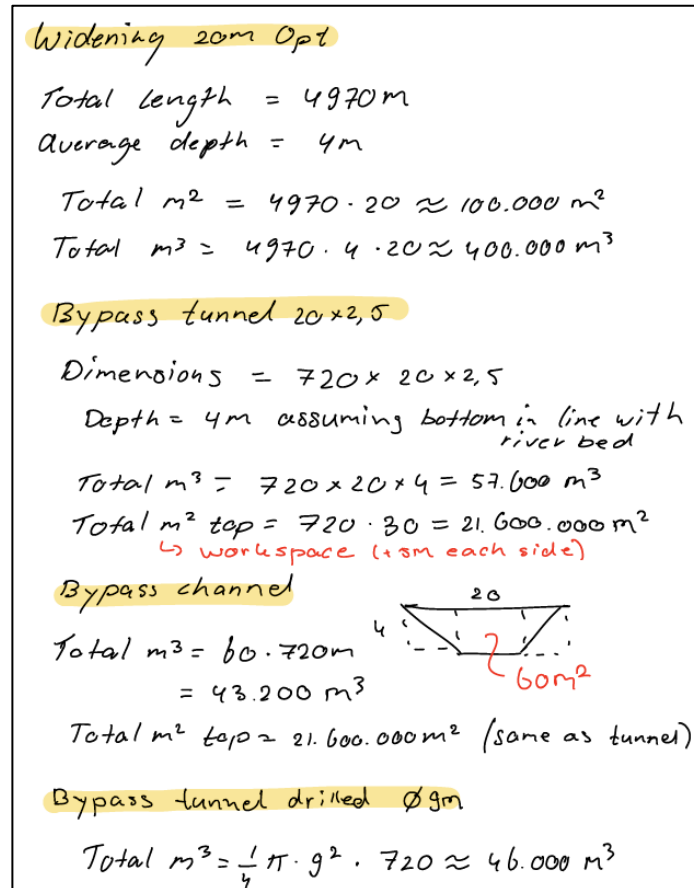 Widening 20m Opt
Total length = 4970m
average depth = 4m
Total m² = 4970 · 20 ≈ 100.000 m²
Total m³ = 4970 · 4 · 20 ≈ 400.000 m³
Bypass tunnel 20×2,5
Dimensions = 720 × 20 × 2,5
Depth = 4m assuming bottom in line with
river bed
Total m³ = 720 × 20 × 4 = 57.600 m³
Total m² top = 720 · 30 = 21.600.000 m²
↳ workspace (+5m each side)
Bypass channel
20
4
60m²
Total m³ = 60 · 720m
= 43.200 m³
Total m² top = 21.600.000 m² (same as tunnel)
Bypass tunnel drilled Ø9m
Total m³ = 1/4 π · 9² · 720 ≈ 46.000 m³